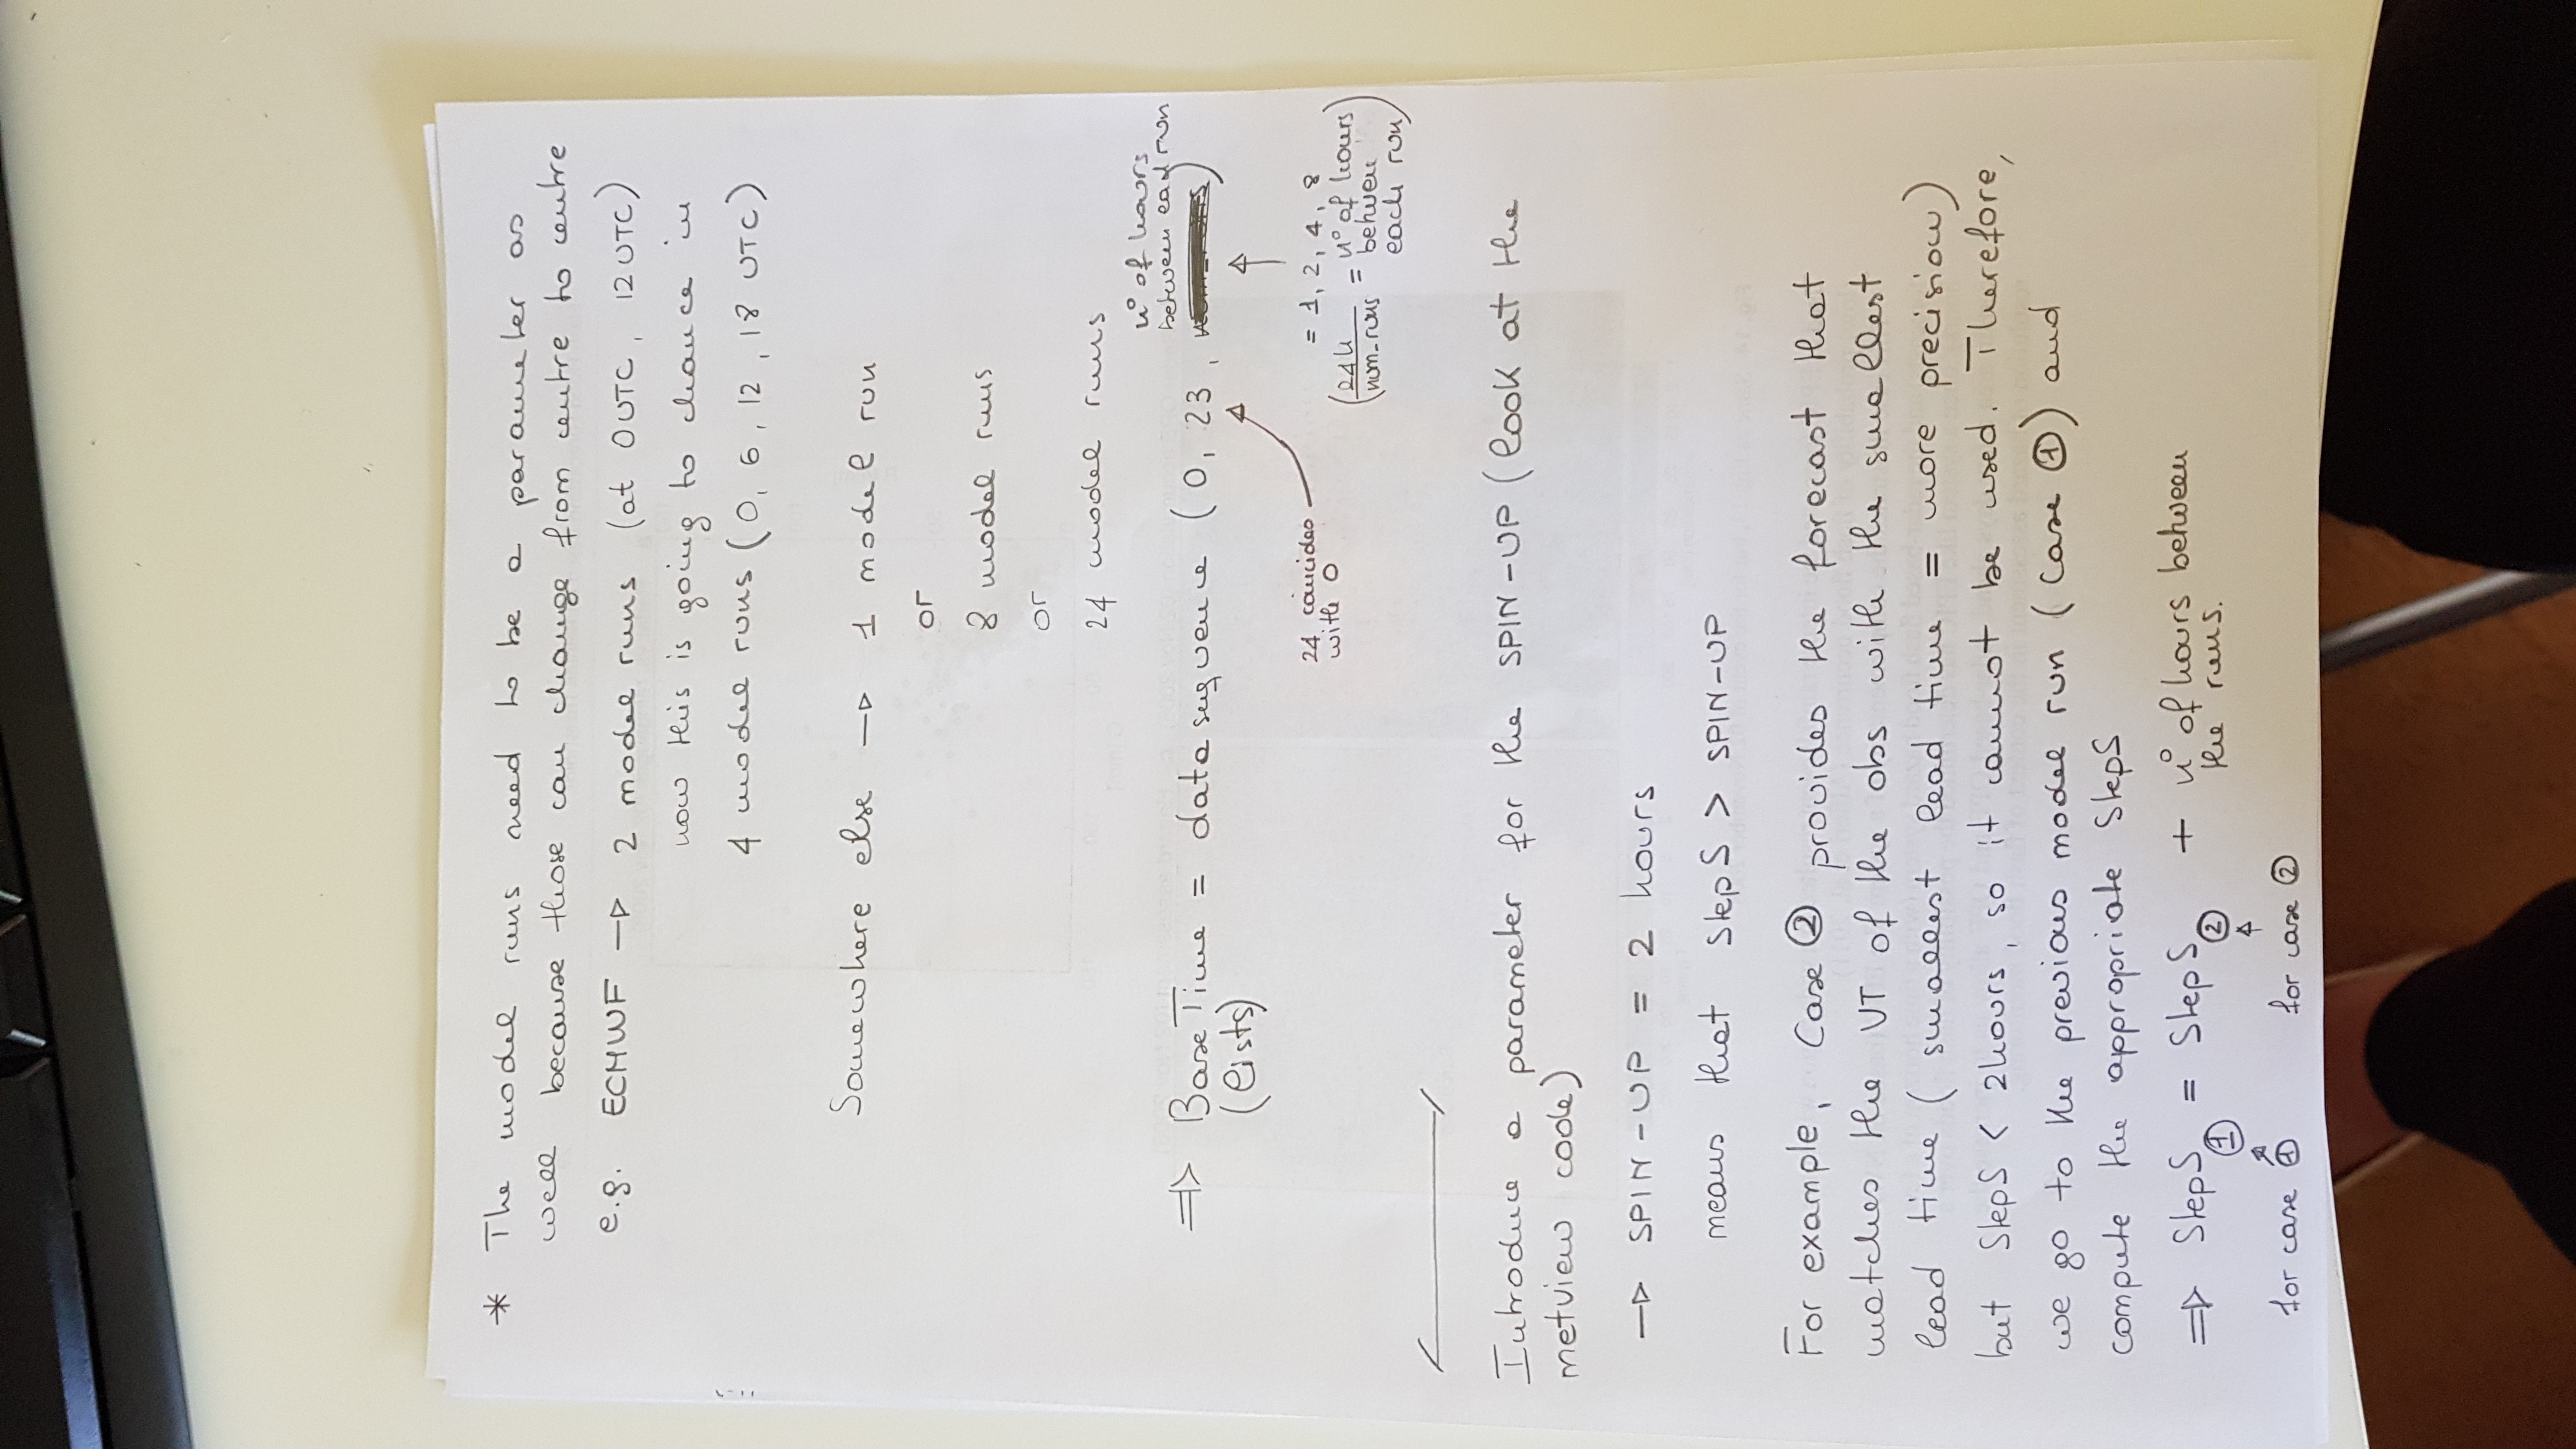 * The model runs need to be a parameter as
well because those can change from centre to centre
e.g. ECMWF → 2 model runs (at 0UTC, 12UTC)
now this is going to chance in
4 model runs (0, 6, 12, 18 UTC)
Somewhere else → 1 model run
or
8 model runs
or
24 model runs
n° of hours
between each run
⇒ BaseTime = data sequence (0, 23, )
(lists)
24 coincides
with 0
= 1, 2, 4, 8
(24h/num_runs = n° of hours
between
each run)
Introduce a parameter for the SPIN-UP (look at the
metview code)
→ SPIN-UP = 2 hours
means that StepS > SPIN-UP
For example, Case ② provides the forecast that
matches the VT of the obs with the smallest
lead time (smallest lead time = more precision)
but StepS < 2hours, so it cannot be used. Therefore,
we go to the previous model run (Case ①) and
compute the appropriate StepS
⇒ StepS① = StepS② + n° of hours between
the runs.
for case ① for case ②